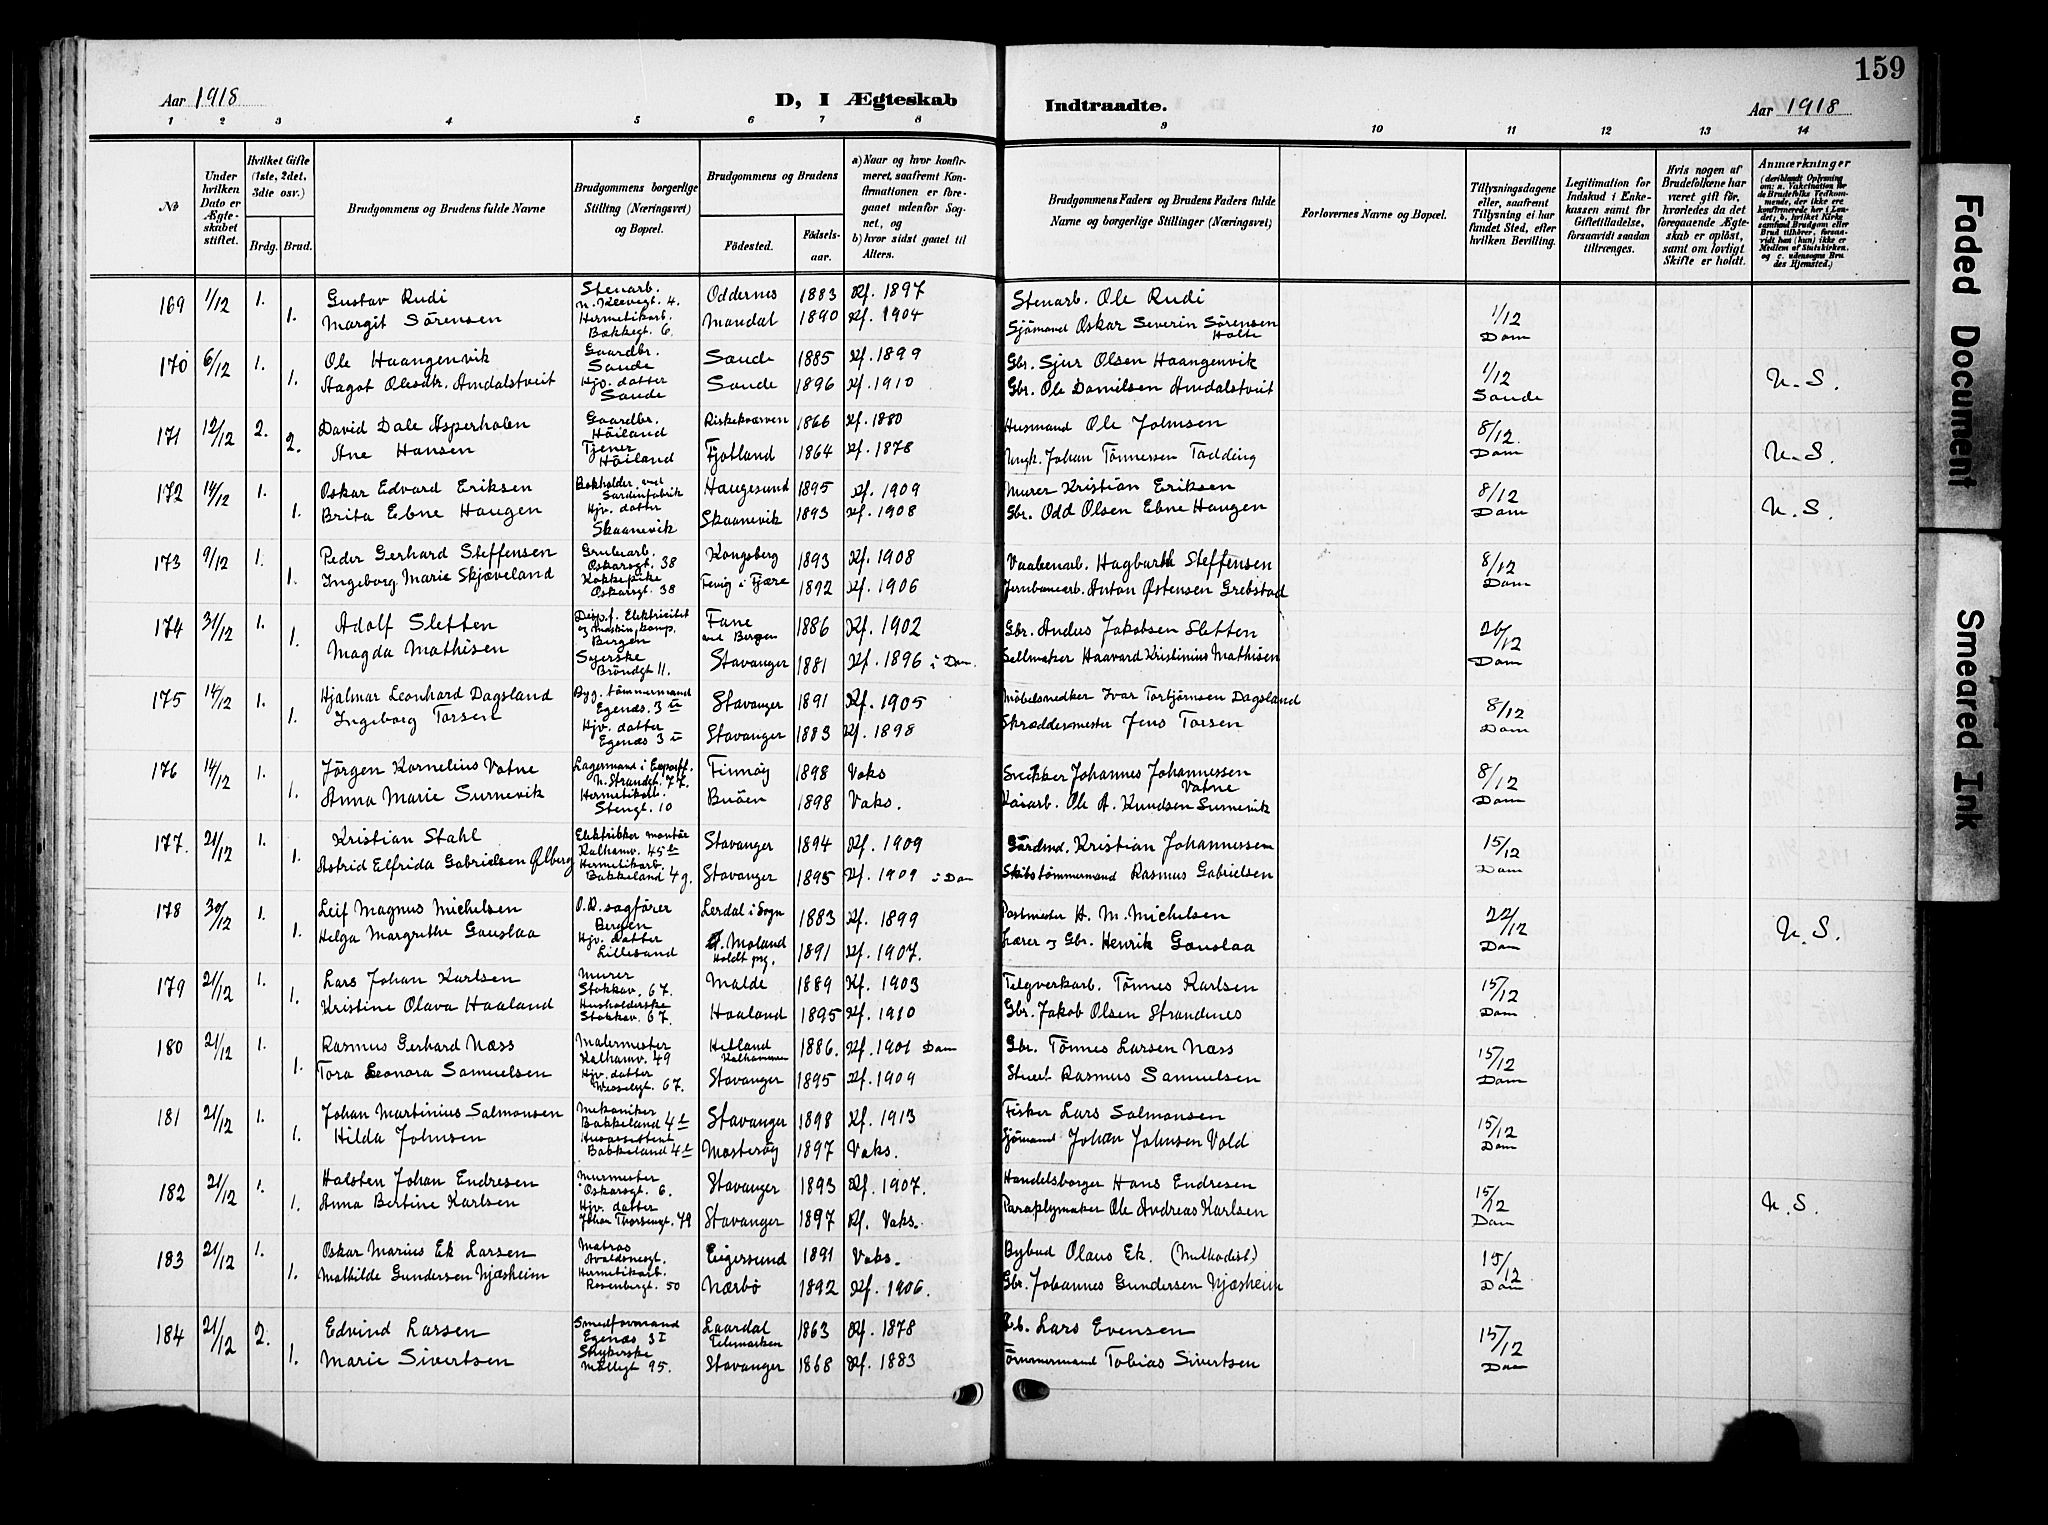 159
Aar 1918
D, I Ægteskab
Indtraadte.
Aar 1918
1 2 3 4 5 6 7 8 9 10 11 12 13 14
No
Under hvilken Dato er Ægteskabet stiftet.
Hvilket Gifte (1ste, 2det, 3die osv.)
Brdg. Brud.
Brudgommens og Brudens fulde Navne
Brudgommens borgerlige Stilling (Næringsvei) og Bopæl.
Brudgommens og Brudens
Fødested.
Fødselsaar.
a) Naar og hvor konfirmeret, saafremt Konfirmationen er foregaaet udenfor Sognet, og
b) hvor sidst gaaet til Alters.
Brudgommens Faders og Brudens Faders fulde Navne og borgerlige Stillinger (Næringsvei)
Forlovernes Navne og Bopæl.
Tillysningsdagene eller, saafremt Tillysning ei har fundet Sted, efter hvilken Bevilling.
Legitimation for Indskud i Enkekassen samt for Giftetilladelse, forsaavidt saadan tiltrænges.
Hvis nogen af Brudefolkene har været gift før, hvorledes da det foregaaende Ægteskab er opløst, samt om lovligt Skifte er holdt.
Anmærkninger
169 1/12 1. Gustav Rudi Stenarb. Oddernes 1883 Kf. 1897 Stenarb. Ole Rudi 1/12
1. Margit Sörensen Hermetikarb. Bakkegt. 6. Mandal 1890 Kf. 1904 Sjömand Oskar Severin Sörensen Holte Dom
170 6/12 1. Ole Haangenvik Gaardbr. Sande Sande 1885 Kf. 1899 Gbr. Sjur Olsen Haangenvik 1/12
1. Aagot Olesdt. Amdalstveit Hjv. datter Sande Sande 1896 Kf. 1910 Gbr. Ole Danielsen Amdalstveit Sande U.S.
171 12/12 2. David Dale Asperholen Gaardbr. Höiland 1866 Kf. 1880 Husmand Ole Johnsen 8/12
2. Ane Hansen Tjener Höiland Fjotland 1864 Kf. 1878 Ungk. Johan Tönnessen Tadding Dom U.S.
172 14/12 1. Oskar Edvard Eriksen Bokholder ved Sardinfabrik Haugesund 1895 Kf. 1909 Murer Kristian Eriksen 8/12
1. Brita Ebne Haugen Hjv. datter Skaanevik Skaanevik 1893 Kf. 1908 Gbr. Odd Olsen Ebne Haugen Dom U.S.
173 9/12 1. Peder Gerhard Steffensen Grubearb. Oskarsgt. 38 Kongsberg 1893 Kf. 1908 Vaabenarb. Hagbarth Steffensen 8/12
1. Ingeborg Marie Skjæveland Kokkepike Oskarsgt. 38 Fevig i Fjære 1892 Kf. 1906 Jernbanearb. Anton Østensen Grebstad Dom
174 31/12 1. Adolf Sletten Disp. f. Elektricitet og Maskin Komp. Bergen Fane ved Bergen 1886 Kf. 1902 Gbr. Anders Jakobsen Sletten 26/12
1. Magda Mathisen Syerske Bröndgt 11. Stavanger 1881 Kf. 1896 i Dom. Seilmaker Haavard Kristinius Mathisen Dom
175 14/12 1. Hjalmar Leonhard Dagsland Byg. tömmermand Egenæs. 3 Stavanger 1891 Kf. 1905 Möbelsnedker Ivar Torbjörnsen Dagsland 8/12
1. Ingeborg Tarsen Hjv. datter Egenæs 3 Stavanger 1883 Kf. 1898 Skræddermester Jens Tarsen Dom
176 14/12 1. Jörgen Kornelius Vatne Lagermand i Exportf. N. Strandgt. 77. Finnöy 1898 Vaks Snekker Johannes Johannessen Vatne 8/12
1. Anna Marie Surnevik Hermetikarb. Stengt. 10 Buöen 1898 Vaks. Ole A. Knudsen Surnevik Dom
177. 21/12 1. Kristian Stahl Elektrikker montör Kalhamv. 45 Stavanger 1894 Kf. 1909 Gårdmd. Kristian Johannessen 15/12
1. Astrid Elfrida Gabrielsen Ølberg Hermetikarb. Bakkeland 4 g. Stavanger 1895 Kf. 1909 i Dom Skibstömmermand Rasmus Gabrielsen Dom
178 30/12 1. Leif Magnus Michelsen O.R. sagförer Bergen Lerdal i Sogn 1883 Kf. 1899 Postmester H. M. Michelsen 22/12
1. Helga Margrethe Gauslaa Hjv. Datter Lillesand Moland Holdt prg. 1891 Kf. 1907. Lærer og Gbr. Henrik Gauslaa Dom U.S.
179 21/12 1. Lars Johan Karlsen Murer Stokkav. 67. Malde 1889 Kf. 1903 Telgverkarb. Tönnes Karlsen 15/12
1. Kristine Olava Haaland Husholderske Stokkav. 67. Haaland 1895 Kf. 1910 Gbr. Jakob Olsen Strandenes Dom
180 21/12 1. Rasmus Gerhard Næss Malermester Kalhamv. 49 Hetland Kalhammeren 1886. Kf. 1901 Dom Gbr. Tönnes Larsen Næss 15/12
1. Tora Leonora Samuelsen Hjv. datter Wesselgt. 67. Stavanger 1895 Kf. 1909 Rasmus Samuelsen Dom
181 21/12 1. Johan Martinius Salmonsen Mekaniker Bakkeland 4 Stavanger 1898 Kf. 1913 Fisker Lars Salmonsen 15/12
1. Hilda Johnsen Husassistent Bakkeland 4 Mosteröy 1897 Vaks. Sjömand Johan Johnsen Vold Dom
182 21/12 1. Halsten Johan Endresen Murmester Oskarsgt. 6. Stavanger 1893 Kf. 1907. Handelsborger Hans Endresen 15/12
1. Anna Bertine Karlsen Hjv. datter Johan Thorsengt. 49 Stavanger 1897 Kf. Vaks. Paraplymaker Ole Andreas Karlsen Dom U.S.
183 21/12 1. Oskar Marius Ek Larsen Matros Avaldsnesgt. Eigersund 1891 Vaks. Bybud Olaus Ek. (Methodist.) 15/12
1. Mathilde Gundersen Njæsheim Hermetikarb. Rosenbergt. 50 Nærbö 1892 Kf. 1906. Gbr. Johannes Gundersen Njæsheim Dom
184 21/12 2. Edvind Larsen Smedformand Egenæs 3I Laardal Telemarken 1863 Kf. 1878 Lars Evensen 15/12
1. Marie Sivertsen Strykerske Möllegt 95. Stavanger 1868 Kf. 1883 Tömmermand Tobias Sivertsen Dom
Faded Document
Smeared Ink